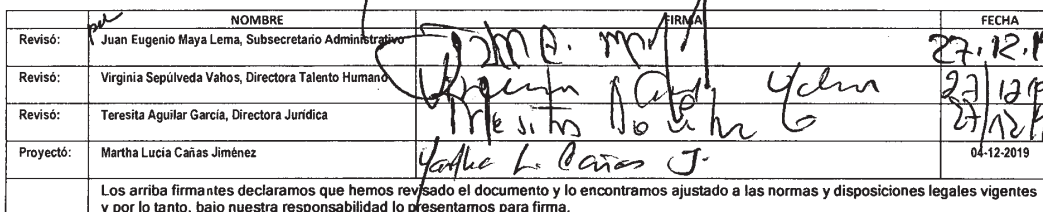 NOMBRE FIRMA FECHA
Revisó: Juan Eugenio Maya Lema, Subsecretario Administrativo 27.12.1
Revisó: Virginia Sepúlveda Vahos, Directora Talento Humano Virginia 27/12/19
Revisó: Teresita Aguilar García, Directora Jurídica Teresita 27/12/1
Proyectó: Martha Lucia Cañas Jiménez Martha L. Cañas J. 04-12-2019
Los arriba firmantes declaramos que hemos revisado el documento y lo encontramos ajustado a las normas y disposiciones legales vigentes
y por lo tanto, bajo nuestra responsabilidad lo presentamos para firma.